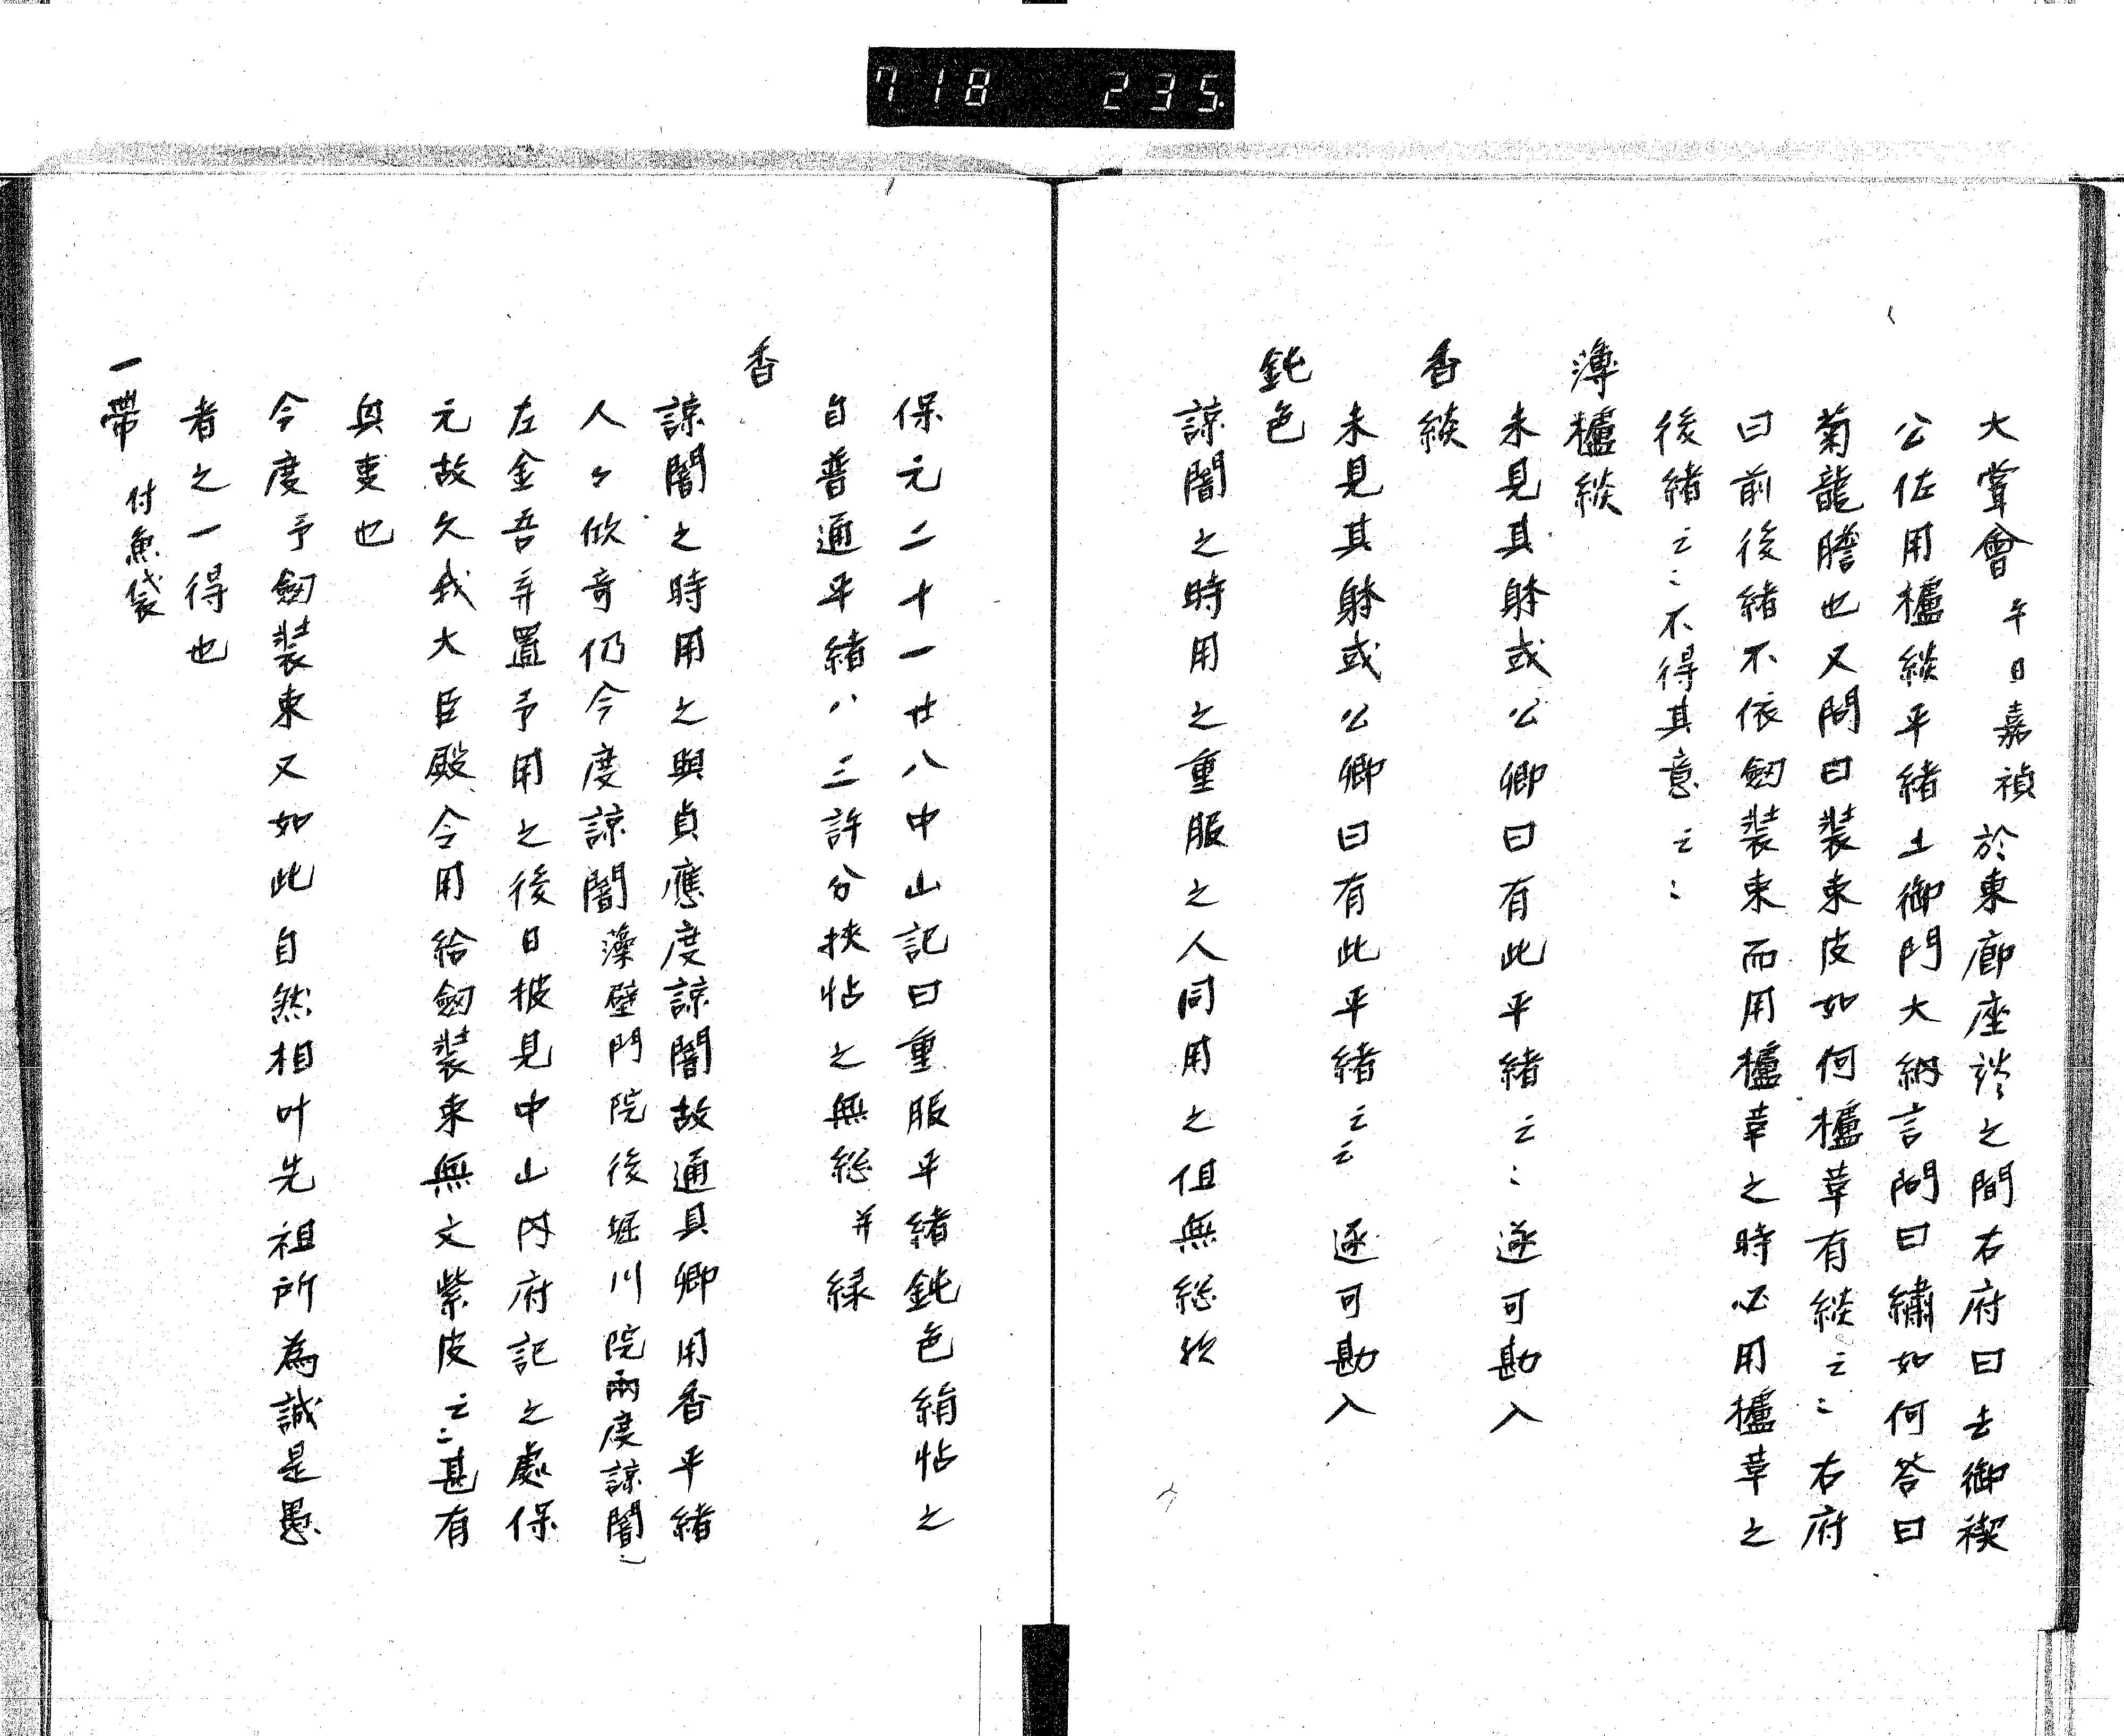 718 235.
大嘗會 午日嘉禎 於東廊座談之間右府曰去御禊
公佐用櫨緂平緒土御門大納言問曰繡如何答曰
菊龍膽也又問曰裝束皮如何櫨革有緂云々右府
曰前後緒不依劔裝束而用櫨革之時必用櫨革之
後緒云々不得其意云々
薄櫨緂
未見其躰或公卿曰有此平緒云々遂可勘入
香緂
未見其躰或公卿曰有此平緒云云 逐可勘入
鈍色
諒闇之時用之重服之人同用之但無総歟
保元二十一廿八中山記曰重服平緒鈍色絹帖之
自普通平緒八三許分挾帖之無総并緑
香
諒闇之時用之與貞應度諒闇故通具卿用香平緒
人々似奇仍今度諒闇 藻壁門院後堀川院兩度諒闇
左金吾弃置予用之後日披見中山内府記之處保
元故久我大臣殿令用給劔裝束無文紫皮云々甚有
與叓也
今度予劔裝束又如此自然相叶先祖所為誠是愚
者之一得也
一帶 付魚袋